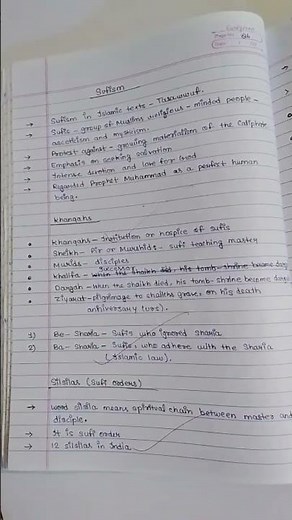 Sufism
→ Sufism in Islamic texts - Tasawwuf.
→ Sufis - group of Muslims religious - minded people -
ascetism and mysticism.
→ Protest against - growing materialism of the Caliphate
→ Emphasis on seeking salvation
→ Intense devotion and love for God
→ Regarded Prophet Muhammad as a perfect human
being.
Khanqahs
• Khanqahs - Institution or hospice of sufis
• Sheikh - Pir or Murshids - Sufi teaching master
• Murids - disciples
• Khalifa - successor
• Dargah - When the shaikh died, his tomb - shrine became
• Ziyarat - pilgrimage to shaikhs graves on his death
anniversary (urs).
1) Be - Sharia - Sufis who ignored sharia
2) Ba - Sharia - Sufis, who adhere with the Sharia
(Islamic law).
Silsilas (Sufi orders)
→ Word silsila means spiritual chain between master and
disciple.
→ It is sufi order
→ 12 silsilas in India